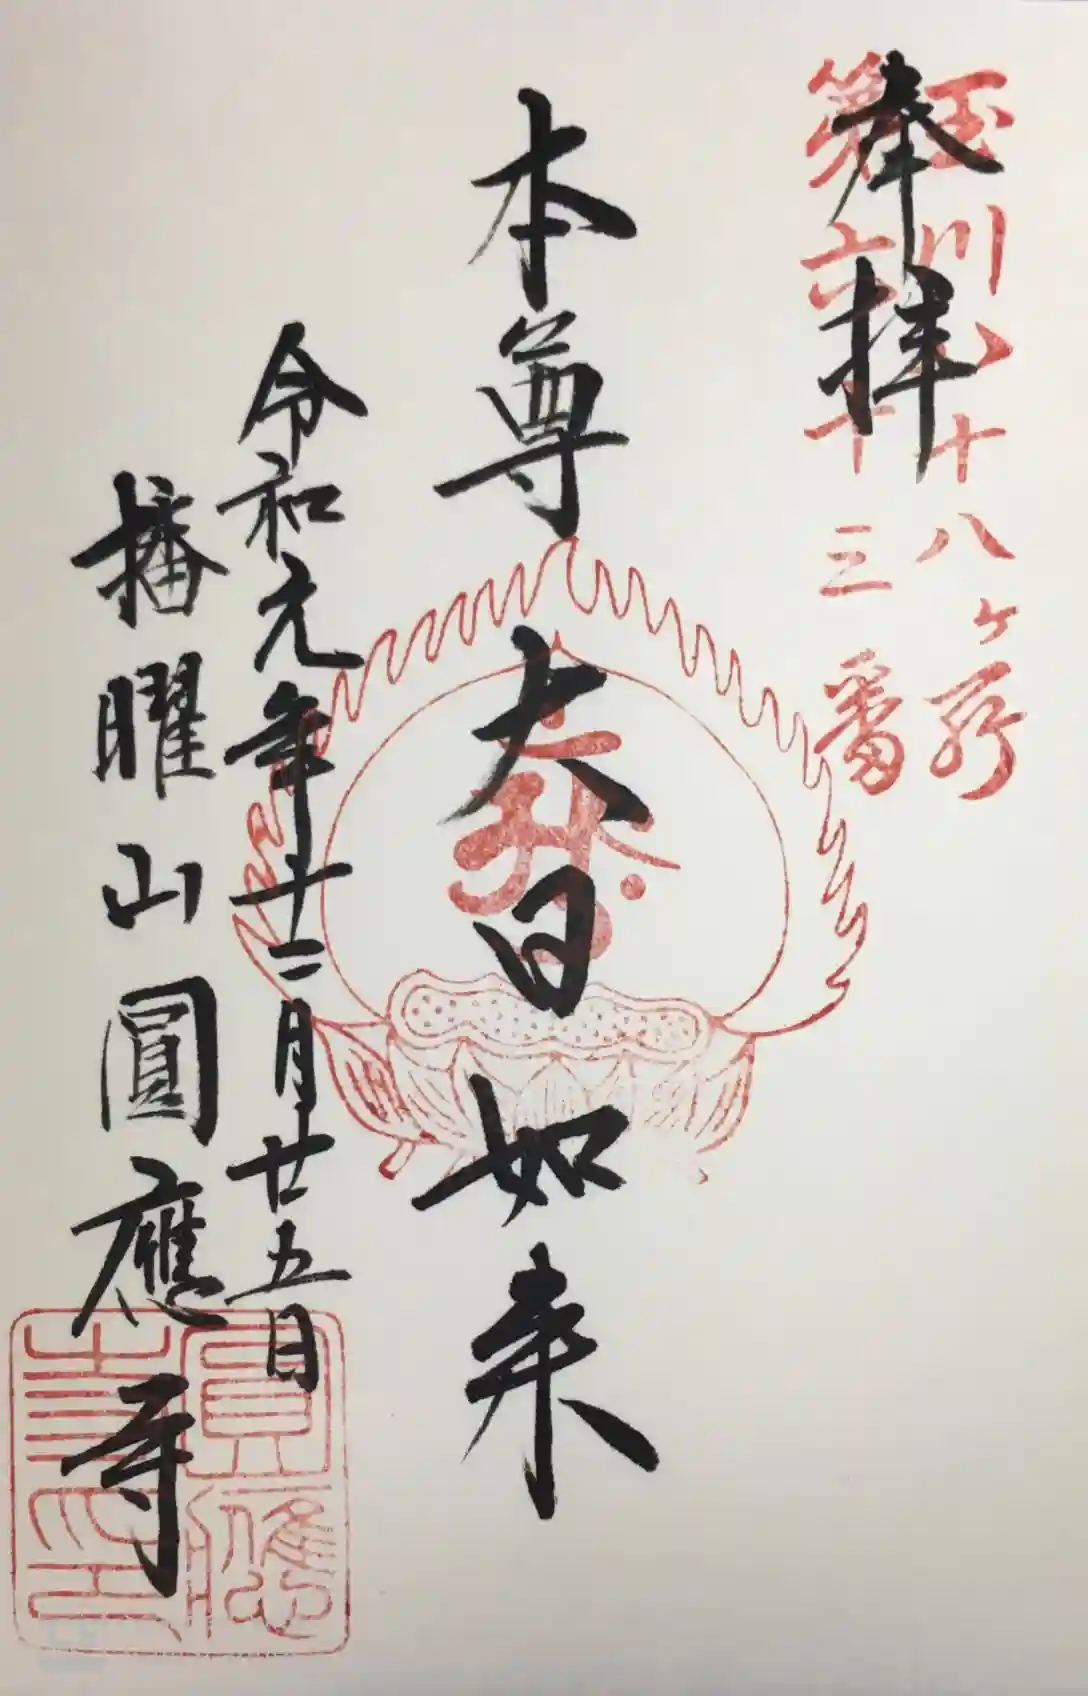 玉川八十八ヶ所
第六十三番
奉拝
本尊 大日如来
令和元年十二月廿五日
播曜山圓應寺
圓應寺印